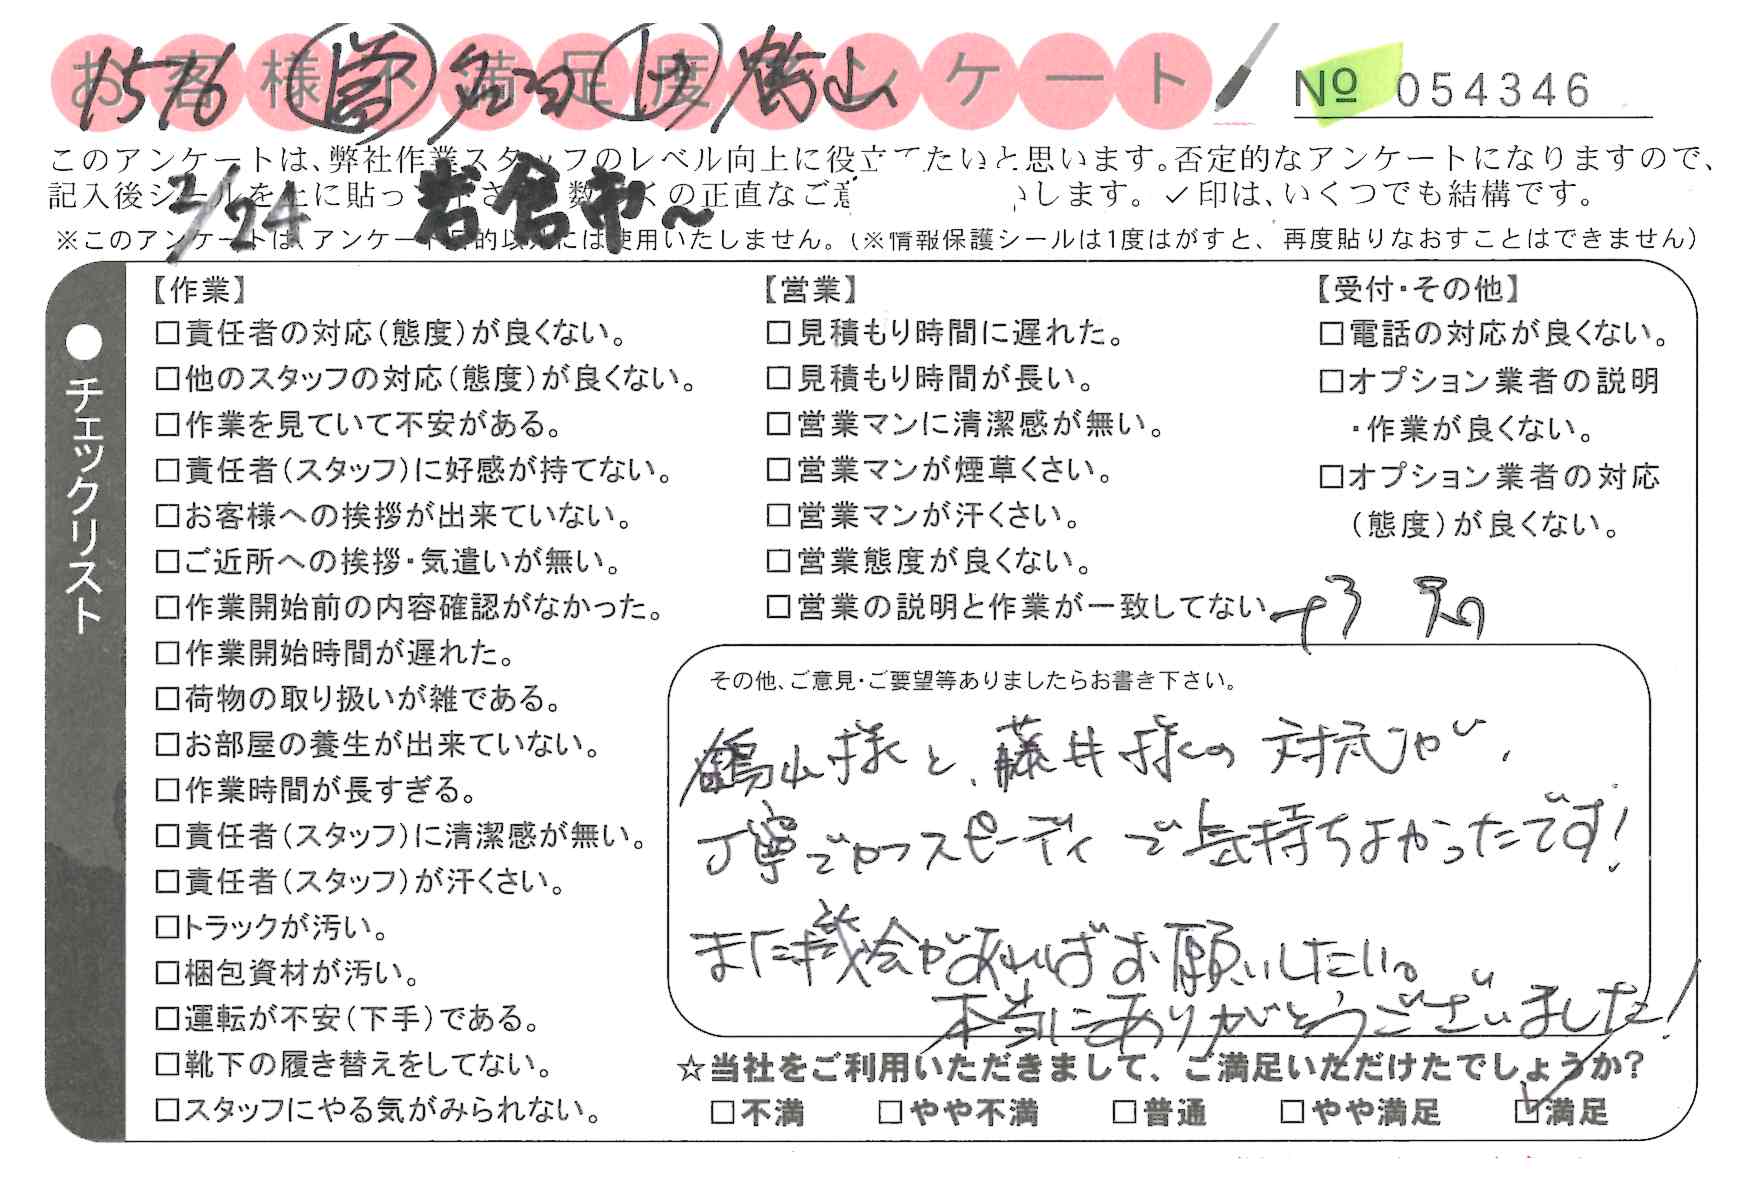 お客様不満足度アンケート
1576 営 リ 鶴山
№ 054346
このアンケートは、弊社作業スタッフのレベル向上に役立てたいと思います。否定的なアンケートになりますので、
記入後シールを上に貼っ 数 くの正直なご意 します。✓印は、いくつでも結構です。
2/24 岩倉市~
※このアンケートは、アンケート目的以外には使用いたしません。(※情報保護シールは1度はがすと、再度貼りなおすことはできません)
●チェックリスト
【作業】
□責任者の対応(態度)が良くない。
□他のスタッフの対応(態度)が良くない。
□作業を見ていて不安がある。
□責任者(スタッフ)に好感が持てない。
□お客様への挨拶が出来ていない。
□ご近所への挨拶・気遣いが無い。
□作業開始前の内容確認がなかった。
□作業開始時間が遅れた。
□荷物の取り扱いが雑である。
□お部屋の養生が出来ていない。
□作業時間が長すぎる。
□責任者(スタッフ)に清潔感が無い。
□責任者(スタッフ)が汗くさい。
□トラックが汚い。
□梱包資材が汚い。
□運転が不安(下手)である。
□靴下の履き替えをしてない。
□スタッフにやる気がみられない。
【営業】
□見積もり時間に遅れた。
□見積もり時間が長い。
□営業マンに清潔感が無い。
□営業マンが煙草くさい。
□営業マンが汗くさい。
□営業態度が良くない。
□営業の説明と作業が一致してない
【受付・その他】
□電話の対応が良くない。
□オプション業者の説明
・作業が良くない。
□オプション業者の対応
(態度)が良くない。
その他、ご意見・ご要望等ありましたらお書き下さい。
鶴山様と、藤井様の対応が、
丁寧でかつスピーディで気持ちよかったです!
また機会があればお願いしたい。
本当にありがとうございました!
☆当社をご利用いただきまして、ご満足いただけたでしょうか?
□不満 □やや不満 □普通 □やや満足 ☑満足